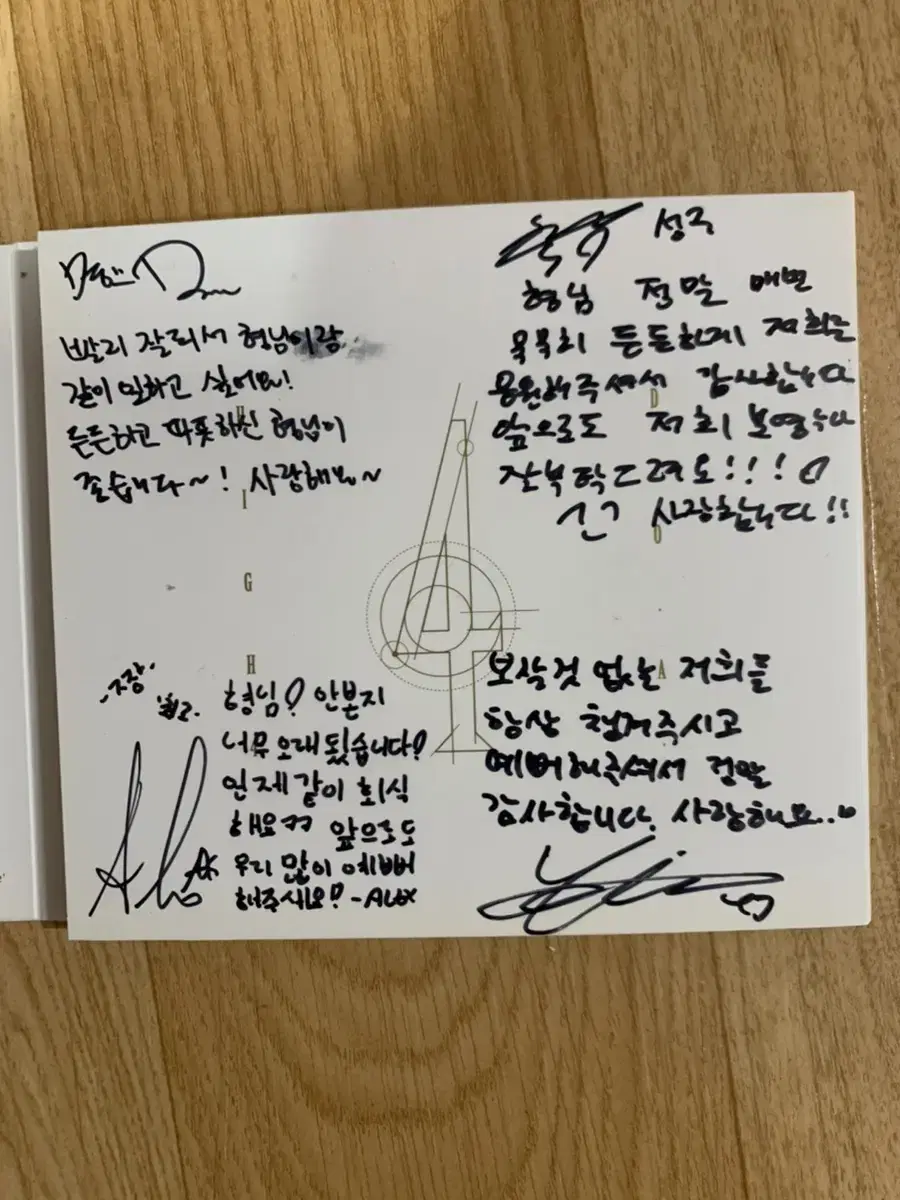 빨리 잘되서 형님이랑
같이 일하고 싶어요!
든든하고 따뜻하신 형님이
좋습니다~! 사랑해요~
성국
형님 정말 매번
묵묵히 든든하게 저희를
응원해주셔서 감사합니다
앞으로도 저희
잘부탁드려요!!!
사랑합니다!!
I
G
H
D
O
A
형님? 안본지
너무 오래됬습니다?
언제 같이 회식
해요ㅋㅋ 앞으로도
우리 많이 예뻐
해주세요? - ALEX
보잘것 없는 저희를
항상 챙겨주시고
예뻐해주셔서 정말
감사합니다. 사랑해요..